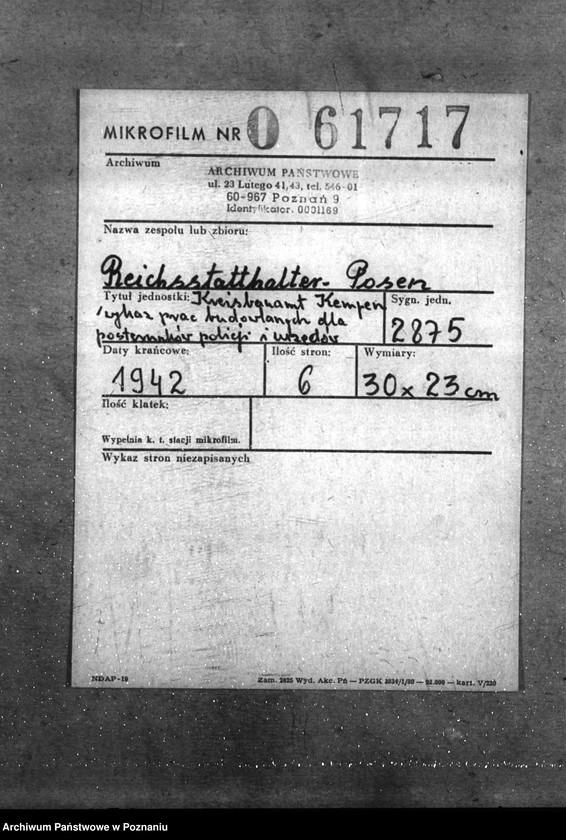 MIKROFILM NR 0 61717
Archiwum
ARCHIWUM PAŃSTWOWE
ul. 23 Lutego 41/43, tel. 546-01
60-967 Poznań 9
Identyfikator. 0001169
Nazwa zespołu lub zbioru:
Reichsstatthalter - Posen
Tytuł jednostki: Kreisbauamt Kempen
/wykaz prac budowlanych dla
posterunków policji i urzędów
Sygn. jedn.
2875
Daty krańcowe:
1942
Ilość stron:
6
Wymiary:
30 x 23 cm
Ilość klatek:
Wypełnia k. t. stacji mikrofilm.
Wykaz stron niezapisanych
NDAP-19
Zam. 2825 Wyd. Akc. Pń — PZGK 2034/I/80 — 92.000 — kart. V/220
Archiwum Państwowe w Poznaniu